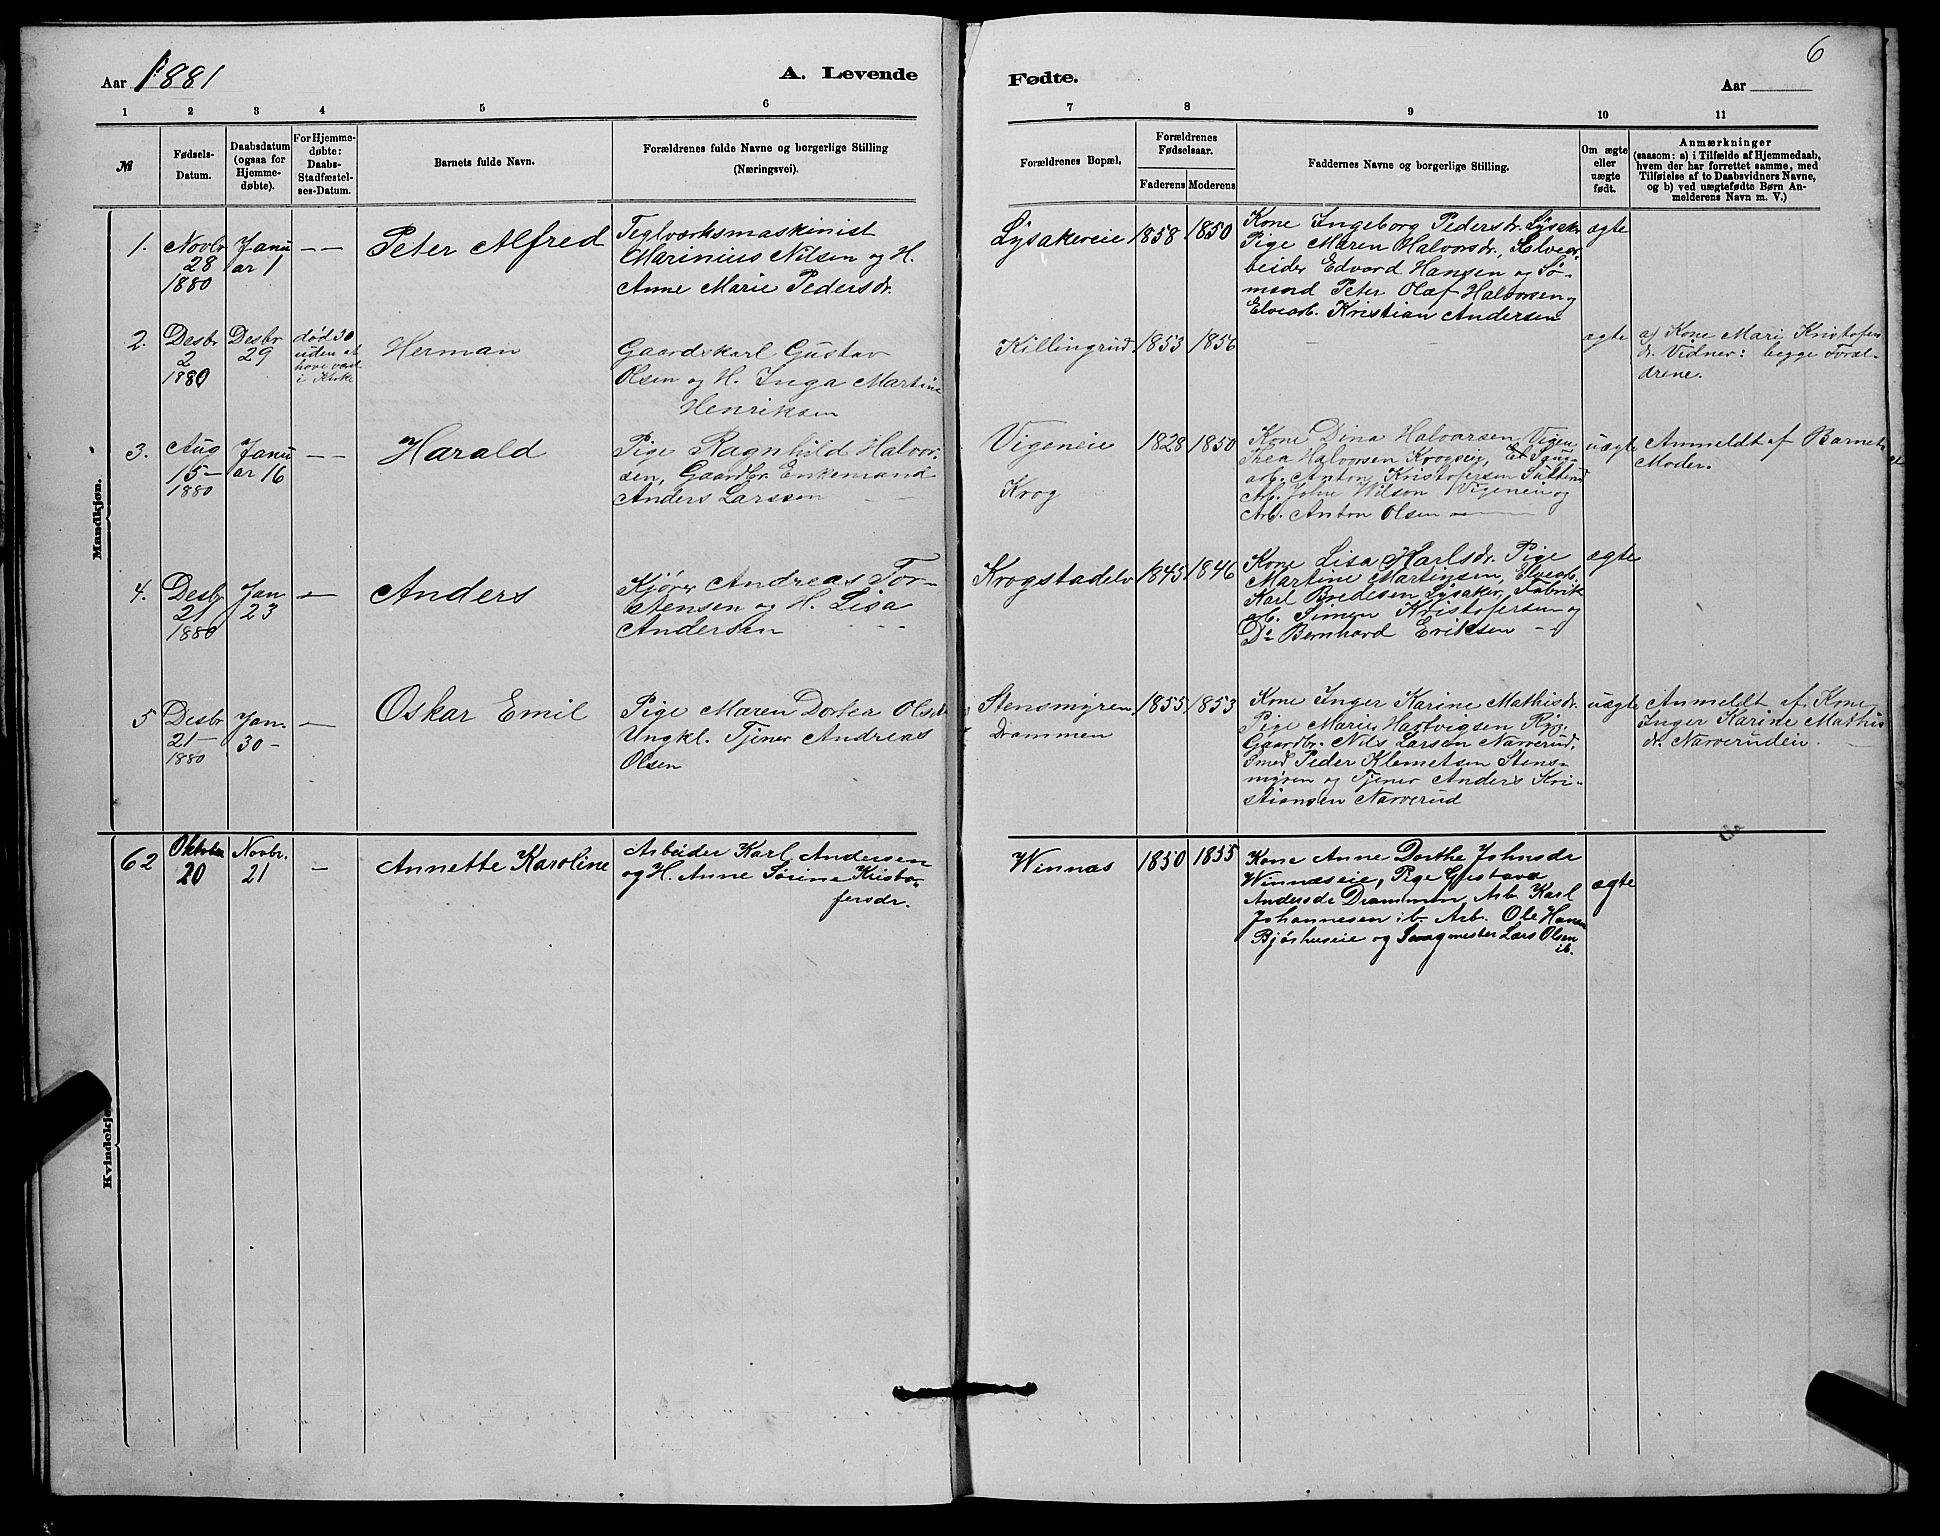 Aar 1881
A. Levende
Fødte.
Aar
6
1
2
3
4
5
6
7
8
9
10
11
№
Fødsels-
Datum.
Daabsdatum
(ogsaa for
Hjemme-
døbte).
For Hjemme-
døbte:
Daabs-
Stadfæstel-
ses-Datum.
Barnets fulde Navn.
Forældrenes fulde Navne og borgerlige Stilling
(Næringsvei).
Forældrenes Bopæl,
Forældrenes
Fødselsaar.
Faderens
Moderens
Faddernes Navne og borgerlige Stilling.
Om ægte
eller
uægte
født.
Anmærkninger
(saasom: a) i Tilfælde af Hjemmedaab,
hvem der har forrettet samme, med
Tilføielse af to Daabsvidners Navne,
og b) ved uægtefødte Børn An-
melderens Navn m. V.)
Mandkjøn.
1.
Novbr
28
1880
Janu
ar 1
— —
Peter Alfred
Teglværksmaskinist
Marinius Nilsen og H.
Anne Marie Pedersdr.
Lysakereie
1858
1850
Kone Ingeborg Pedersdr. Lysaker
Pige Maren Halvorsdr., Elvear-
beider Edvard Hansen og Sø-
mand Peter Olaf Halvorsen og
Elvearb. Kristian Andersen
ægte
2.
Desbr
2
1880
Desbr
29
død 30
uden at
have været
i Kirke
Herman
Gaardskarl Gustav
Olsen og H. Inga Martine
Henriksen
Killingrud
1853
1856
— —
ægte
a) Kone Mari Kristofers
dr. Vidner: begge Foræl-
drene.
3.
Aug
15 —
1880
Janu
ar 16
— —
Harald
Pige Ragnhild Halvor-
sen, Gaardbr. Enkemand
Anders Larssen — —
Vigeneie
Krog
1828
1850
Kone Dina Halvorsen Vigen
Thea Halvorsen Krogseie,
arb. Anton Kristofersen
Arb. John Wilson Vigeneie og
Arb. Anton Olsen —
uægte
Anmeldt af Barnets
Moder.
4.
Desbr
21
1880
Jan
23
—
Anders
Kjører Andreas Tor-
stensen og H. Lisa
Andersen — —
Krogstadelv
1845
1846
Kone Lisa Karlsdr. Pige
Martine Martinsen, Elvearb.
Karl Bredesen Lysaker, Fabrik
arb. Simen Kristofersen og
Do Bernhard Eriksen —
ægte
5
Desbr
21 —
1880
Jan.
30 —
—
Oskar Emil
Pige Maren Dortea Olsen
Ungkl. Tjener Andreas
Olsen
Stensmyren
Drammen
1855
1853
Kone Inger Karine Mathisdr.
Pige Marie Hartvigsen Ryg.
Gaardbr. Nils Larsen Narverud,
Smed Peder Klemetsen Stens-
myren og Tjener Anders Kri-
stiansen Narverud
uægte
Anmeldt af Kone
Inger Karine Mathis
dr. Narverudeie. —
Kvindekjøn.
62
Oktober
20
Novbr.
21
—
Annette Karoline
Arbeider Karl Andersen
og H. Anne Sørine Kristo-
fersdr.
Winnæs
1850
1855
Kone Anne Dorthe Johnsdr
Winnæseie, Pige Gustava
Andersdr Drammen, Arb. Karl
Johannesen ib. Arb. Ole Hansen
Bjørhuseie og Svagmester Lars Olsen
ib.
ægte